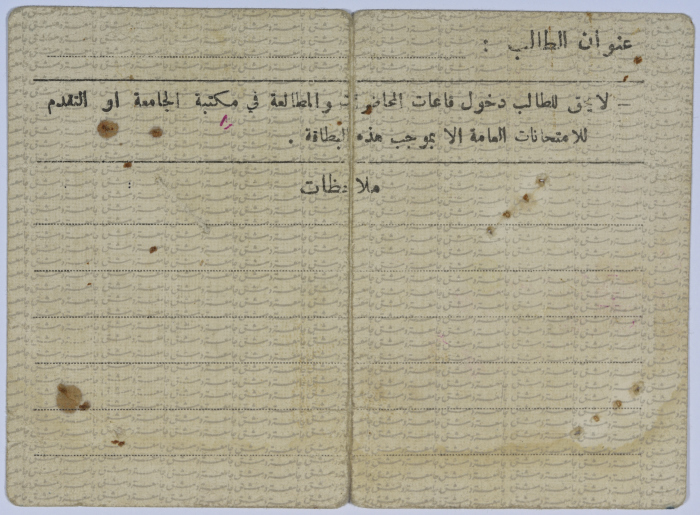 عنوان الطالب :
– لا يحق للطالب دخول قاعات المحاضرات والمطالعة في مكتبة الجامعة او التقدم
للامتحانات العامة الا بموجب هذه البطاقة .
ملاحظات